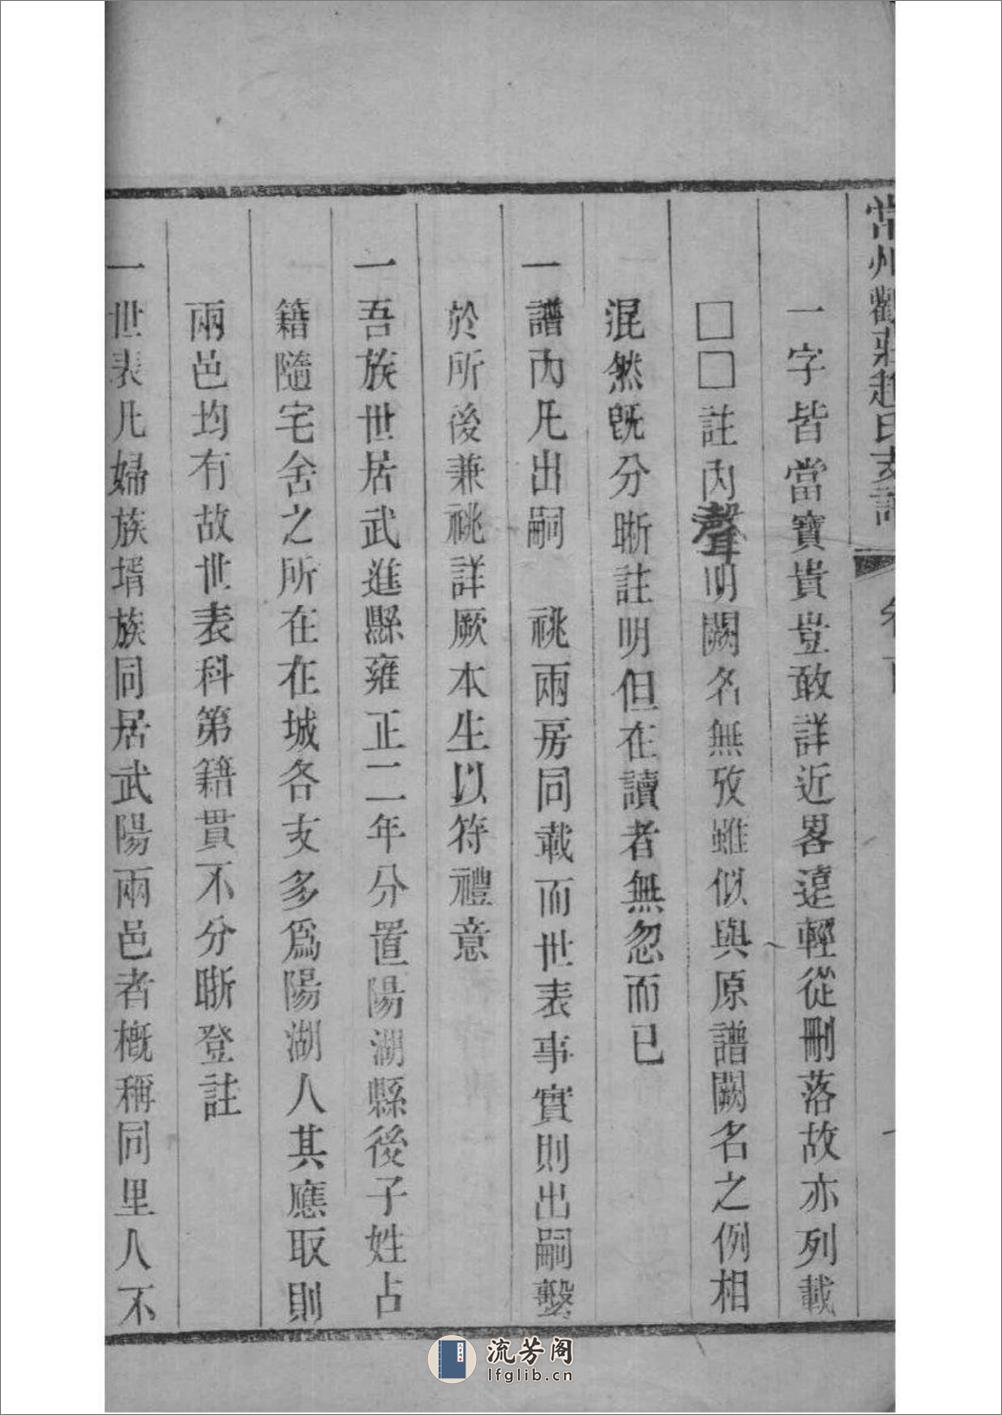 常州觀莊趙氏支譜
一字皆當寶貴豈敢詳近畧遠輕從刪落故亦列載
□□註內聲明闕名無攷雖似與原譜闕名之例相
混然旣分晰註明但在讀者無忽而已
一譜內凡出嗣 祧兩房同載而世表事實則出嗣繫
於所後兼祧詳厥本生以符禮意
一吾族世居武進縣雍正二年分置陽湖縣後子姓占
籍隨宅舍之所在在城各支多爲陽湖人其應取則
兩邑均有故世表科第籍貫不分晰登註
一世表凡婦族壻族同居武陽兩邑者槪稱同里人不
流芳阁
lfglib.cn